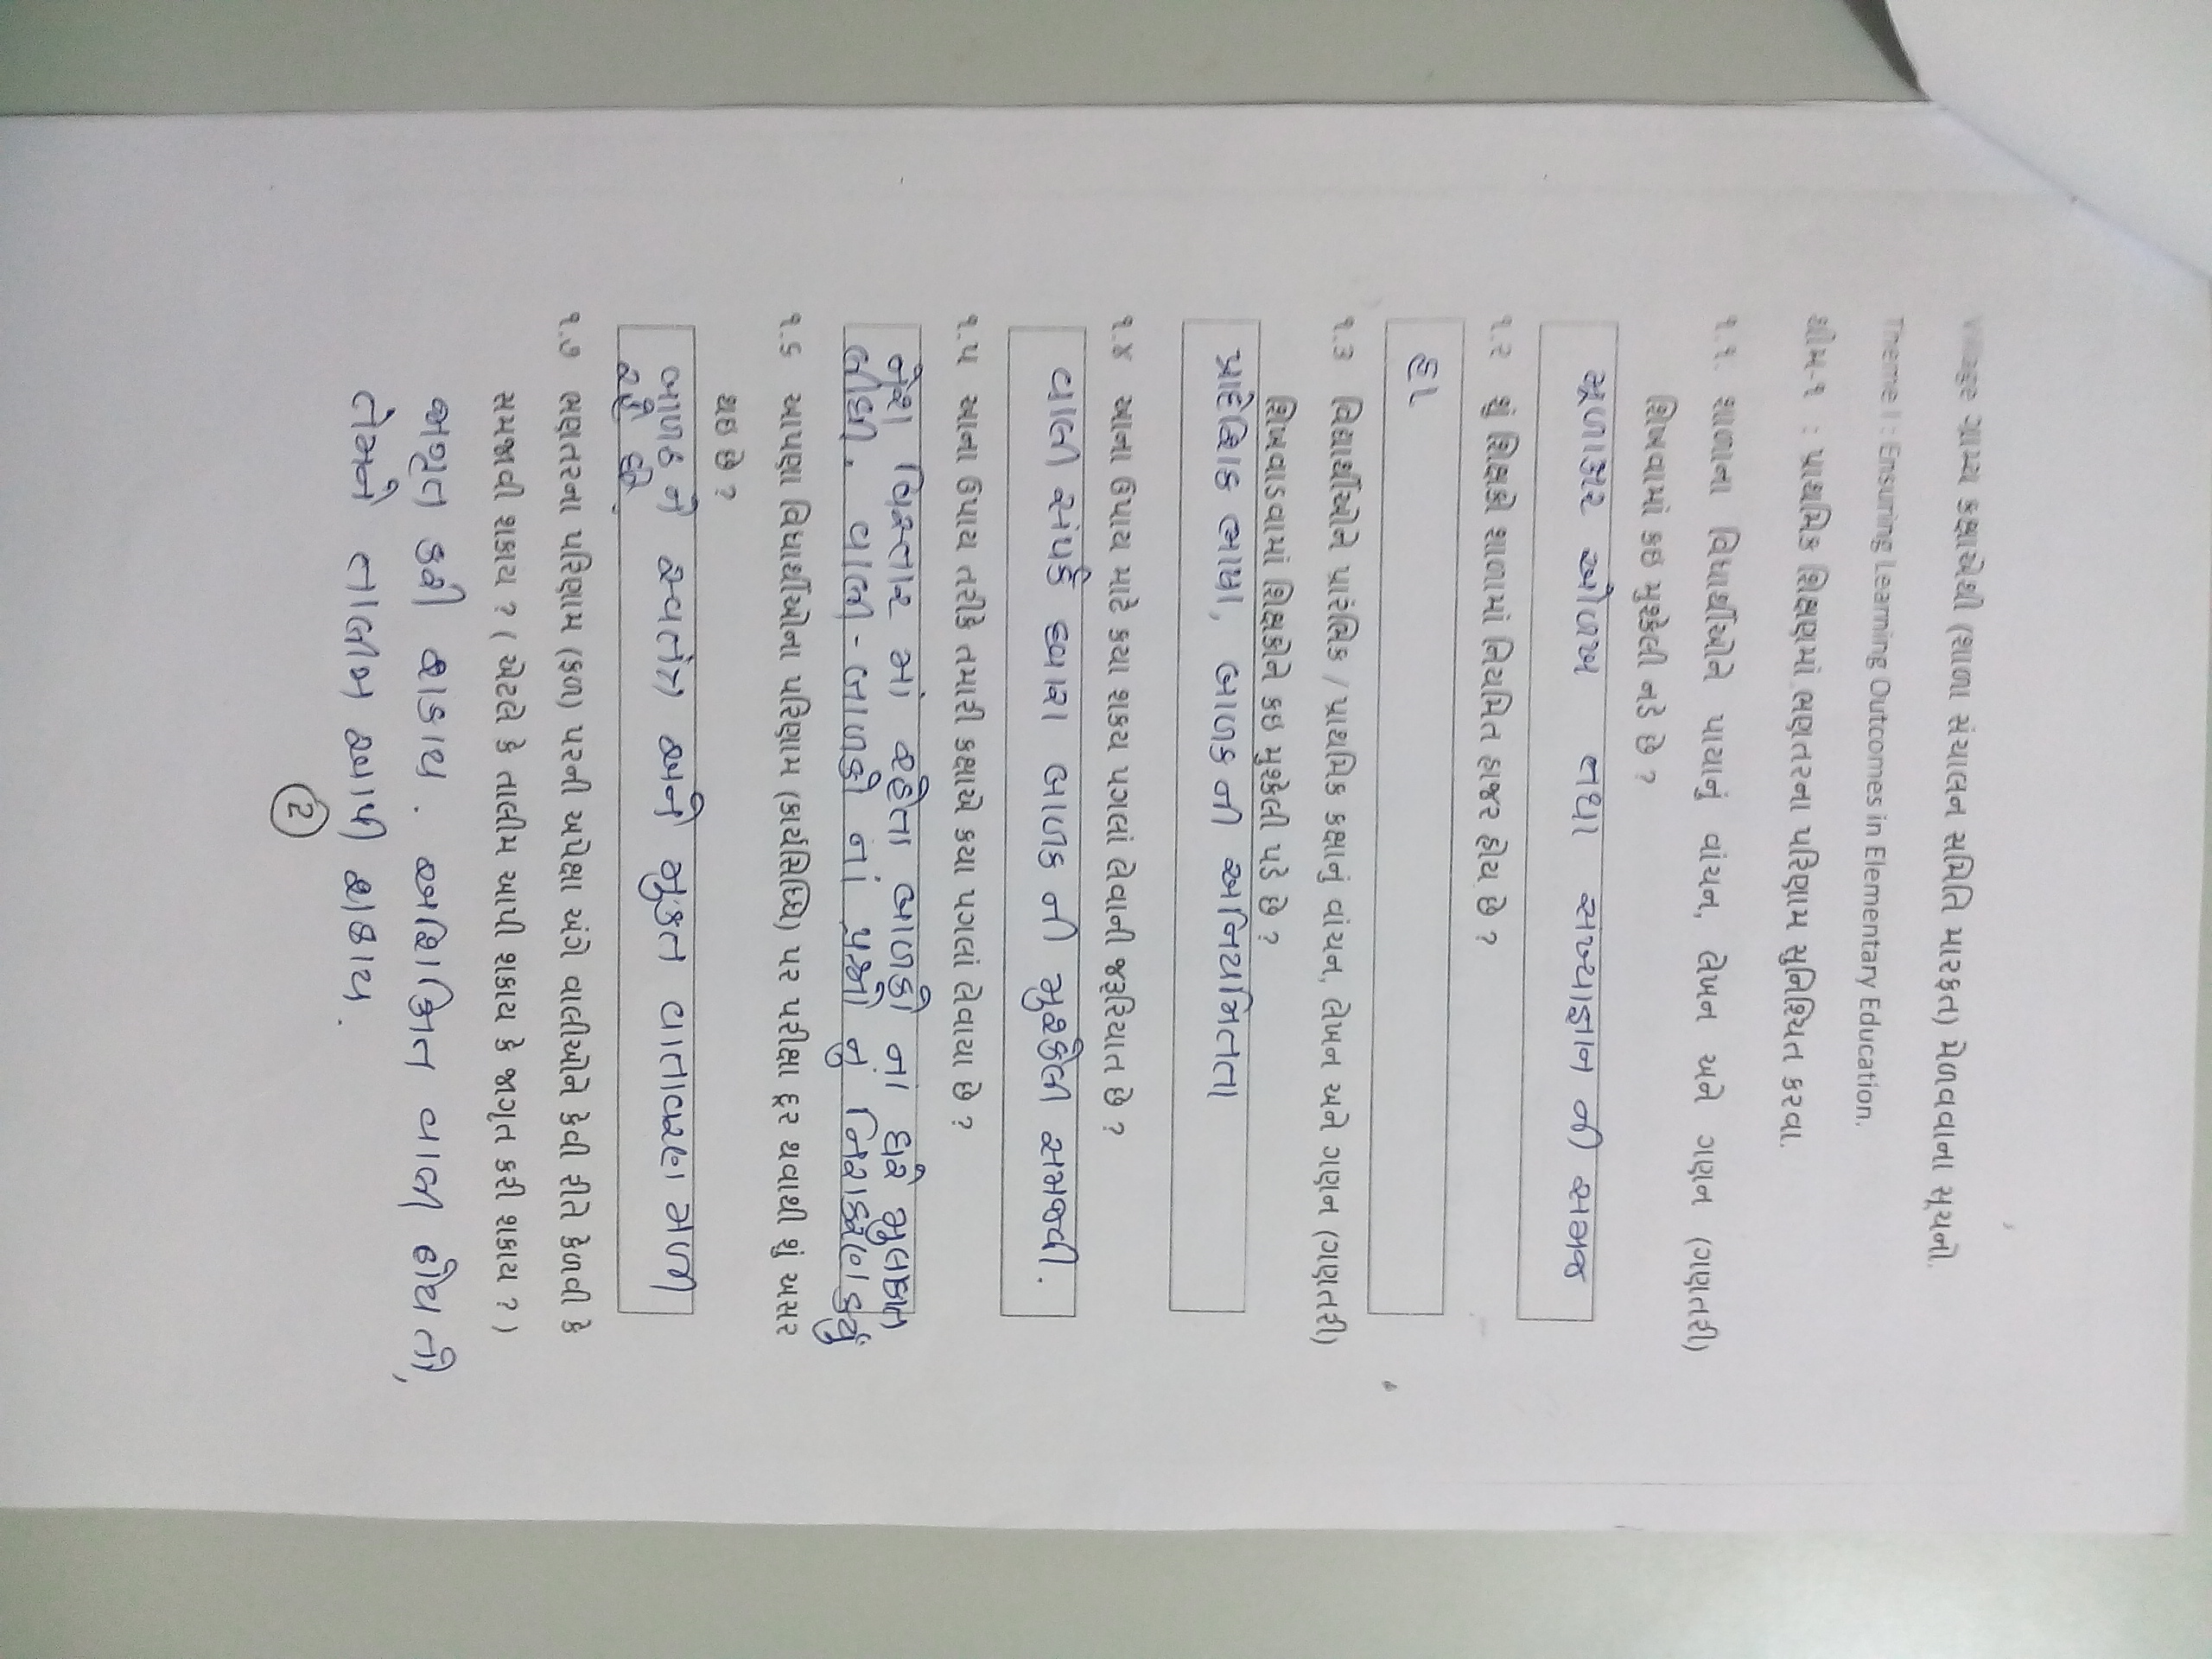 Village ગ્રામ્ય કક્ષાએથી (શાળા સંચાલન સમિતિ મારફત) મેળવવાના સૂચનો.
Theme I : Ensuring Learning Outcomes in Elementary Education.
થીમ-૧ : પ્રાથમિક શિક્ષણમાં ભણતરના પરિણામ સુનિશ્ચિત કરવા.
૧.૧. શાળાના વિધાર્થીઓને પાયાનું વાંચન, લેખન અને ગણન (ગણતરી)
શિખવામાં કઇ મુશ્કેલી નડે છે ?
મૂળાક્ષર ઓળખ તથા સંખ્યાજ્ઞાન ની સમજ
૧.૨ શું શિક્ષકો શાળામાં નિયમિત હાજર હોય છે ?
હા
૧.૩ વિદ્યાર્થીઓને પ્રારંભિક / પ્રાથમિક કક્ષાનું વાંચન, લેખન અને ગણન (ગણતરી)
શિખવાડવામાં શિક્ષકોને કઇ મુશ્કેલી પડે છે ?
પ્રાદેશિક ભાષા, બાળક ની અનિયમિતતા
૧.૪ આના ઉપાય માટે કયા શક્ય પગલાં લેવાની જરૂરિયાત છે ?
વાલી સંપર્ક દ્વારા બાળક ની મુશ્કેલી સમજવી.
૧.૫ આના ઉપાય તરીકે તમારી કક્ષાએ કયા પગલાં લેવાયા છે ?
નેસ વિસ્તાર માં રહેતા બાળકો ના ઘરે મુલાકાત
લીધી. વાલી - બાળકો નાં પ્રશ્નો નું નિરાકરણ કર્યું
૧.૬ આપણા વિધાર્થીઓના પરિણામ (કાર્યસિધ્ધિ) પર પરીક્ષા દૂર થવાથી શું અસર
થઇ છે ?
બાળકો ને સ્વતંત્ર અને મુક્ત વાતાવરણ મળી
રહે છે.
૧.૭ ભણતરના પરિણામ (ફળ) પરની અપેક્ષા અંગે વાલીઓને કેવી રીતે કેળવી કે
સમજાવી શકાય ? ( એટલે કે તાલીમ આપી શકાય કે જાગૃત કરી શકાય ? )
જાગૃત કરી શકાય. અશિક્ષિત વાલી હોય તો,
તેમને તાલીમ આપી શકાય.
2